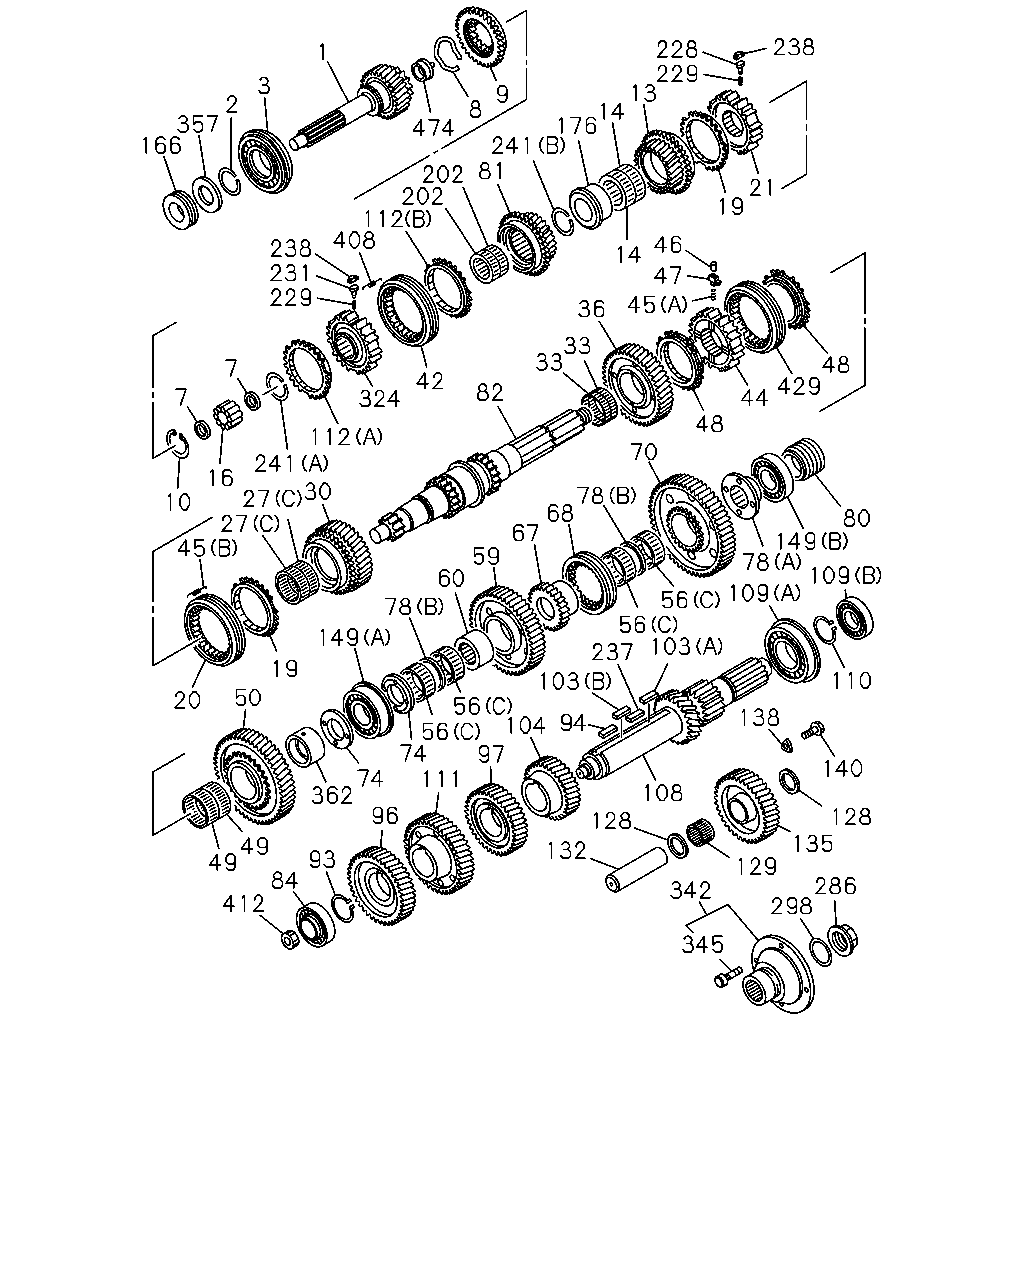 1
3
2
357
166
474
8
9
228
238
229
13
14
176
241(B)
81
202
202
112(B)
408
238
231
229
21
19
14
46
47
45(A)
36
33
33
48
429
44
48
42
324
112(A)
7
7
16
241(A)
10
82
70
30
27(C)
27(C)
45(B)
78(B)
68
67
59
60
78(B)
149(A)
80
149(B)
78(A)
109(B)
109(A)
56(C)
56(C)
103(A)
237
103(B)
94
110
20
19
50
56(C)
56(C)
74
74
362
104
97
111
138
140
108
128
135
49
49
96
128
132
129
93
84
412
342
345
286
298